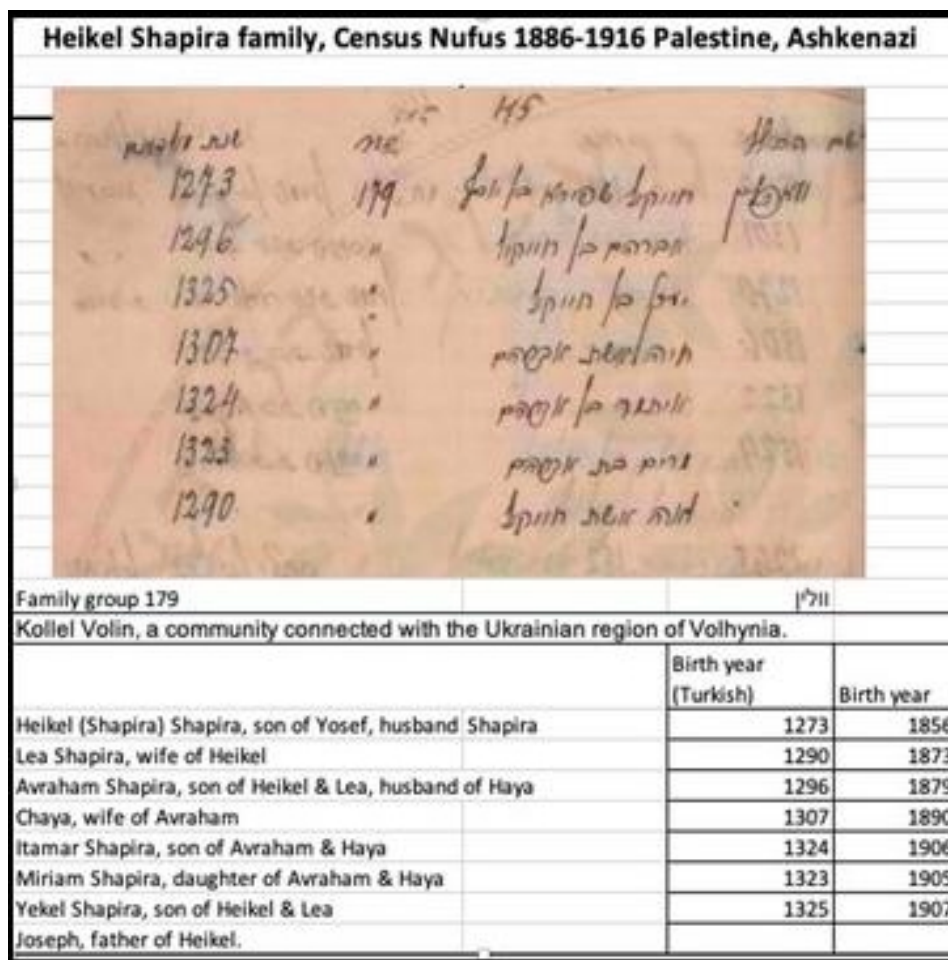 Heikel Shapira family, Census Nufus 1886-1916 Palestine, Ashkenazi
שם
1273 179 חייקל שפירא בן יוסף
1296 " אברהם בן חייקל
1325 " יעקל בן חייקל
1307 " חיה אשת אברהם
1324 " איתמר בן אברהם
1323 " מרים בת אברהם
1290 " לאה אשת חייקל
Family group 179 וולין
Kollel Volin, a community connected with the Ukrainian region of Volhynia.
Birth year (Turkish) Birth year
Heikel (Shapira) Shapira, son of Yosef, husband Shapira 1273 1856
Lea Shapira, wife of Heikel 1290 1873
Avraham Shapira, son of Heikel & Lea, husband of Haya 1296 1879
Chaya, wife of Avraham 1307 1890
Itamar Shapira, son of Avraham & Haya 1324 1906
Miriam Shapira, daughter of Avraham & Haya 1323 1905
Yekel Shapira, son of Heikel & Lea 1325 1907
Joseph, father of Heikel.